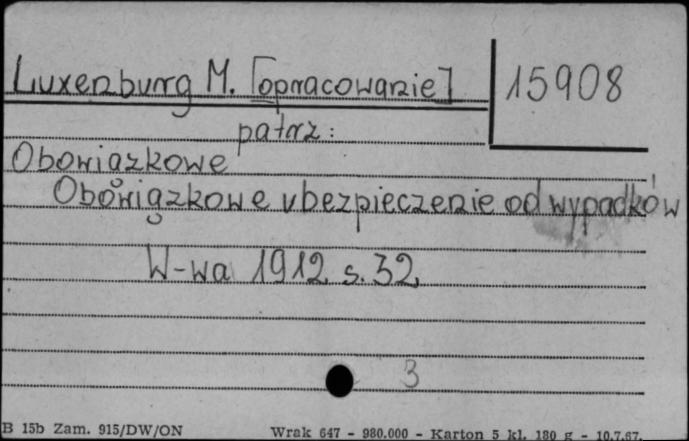 Luxenburg M. [opracowanie]
15908
patrz:
Obowiązkowe
Obowiązkowe ubezpieczenie od wypadków
W-wa 1912 s. 32,
3
B 15b Zam. 915/DW/ON
Wrak 647 - 980.000 - Karton 5 kl. 180 g - 10.7.67.